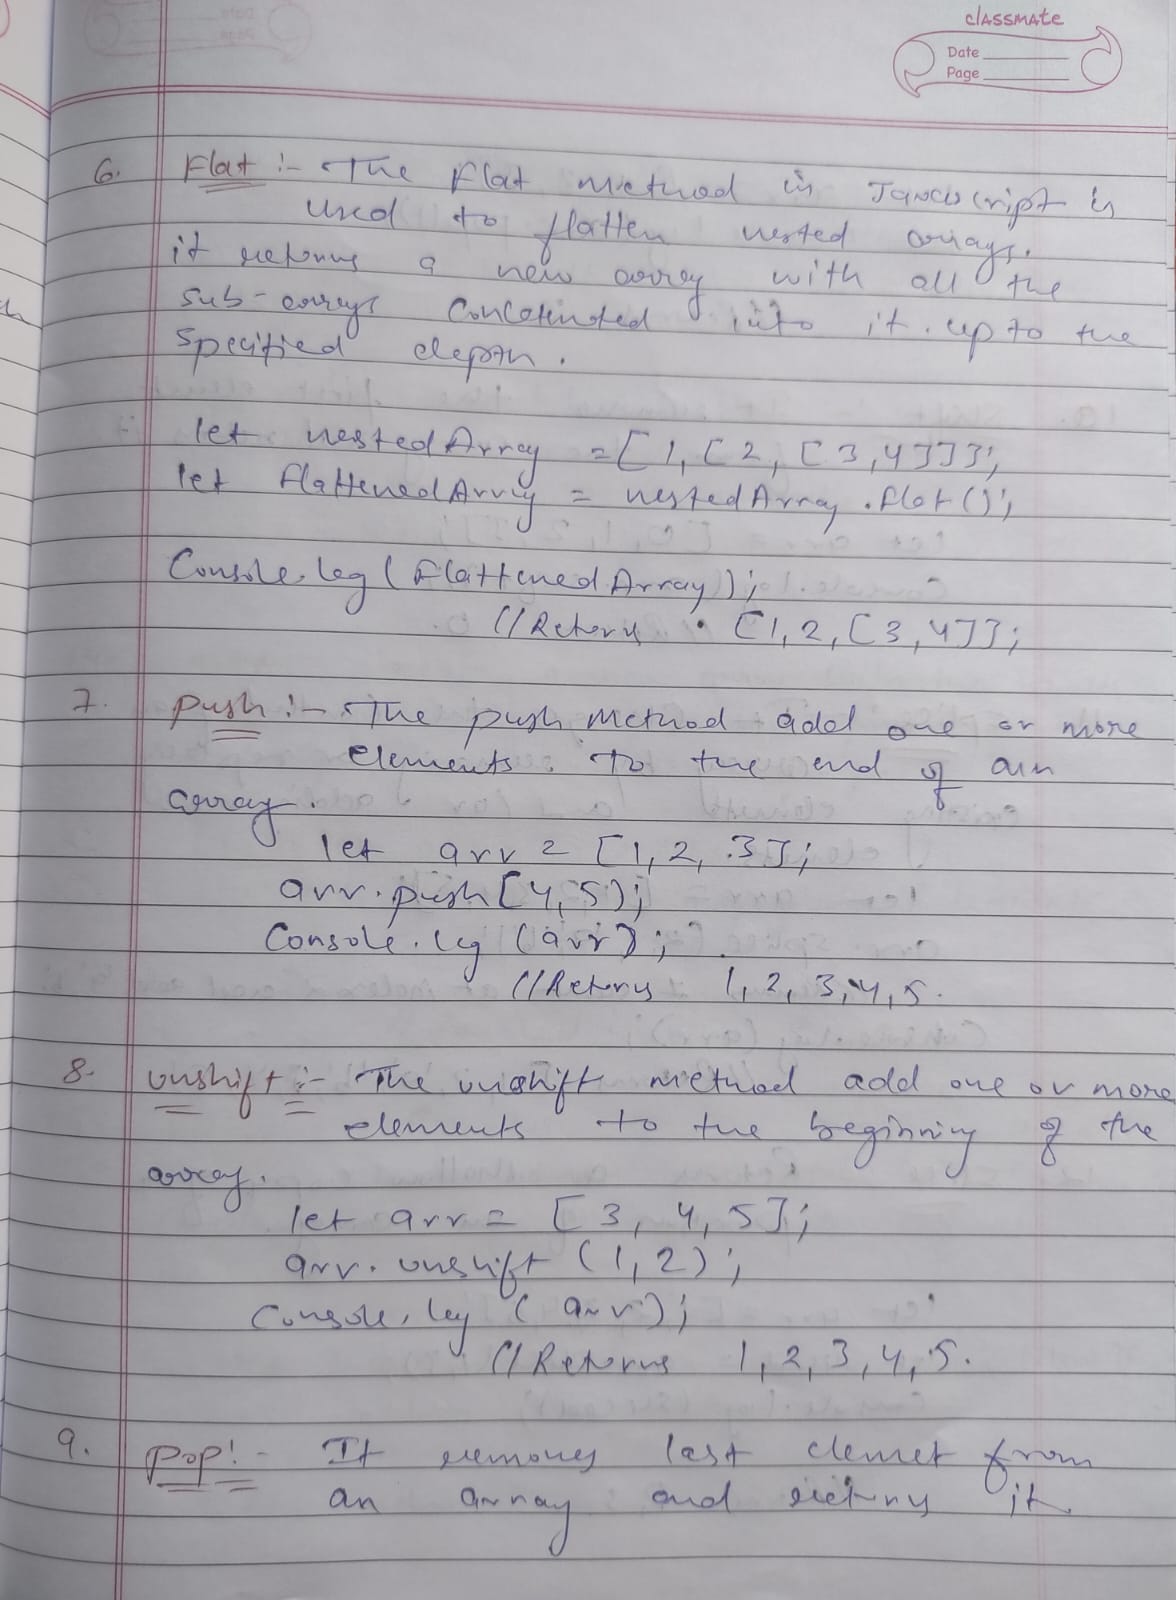 classmate
Date
Page
6. Flat :- The Flat method in Javascript is
used to flatten nested arrays.
it returns a new array with all the
sub-arrays concatinated into it. up to the
specified depth.
let nestedArray = [1, [2, [3,4]]];
let flattenedArray = nestedArray.flat();
Console.log (FlattenedArray);
//Return [1,2,[3,4]];
7. Push :- The push Method add one or more
elements. To the end of an
array.
let arr = [1,2, 3];
arr.push[4,5);
Console.log (arr);
//Returns 1,2,3,4,5.
8. unshift :- The unshift method add one or more
elements to the beginning of the
array.
let arr = [3, 4,5];
arr.unshift (1,2);
Console.log (arr);
//Returns 1,2,3,4,5.
9. Pop! - It removes last elemet from
an array and returns it.